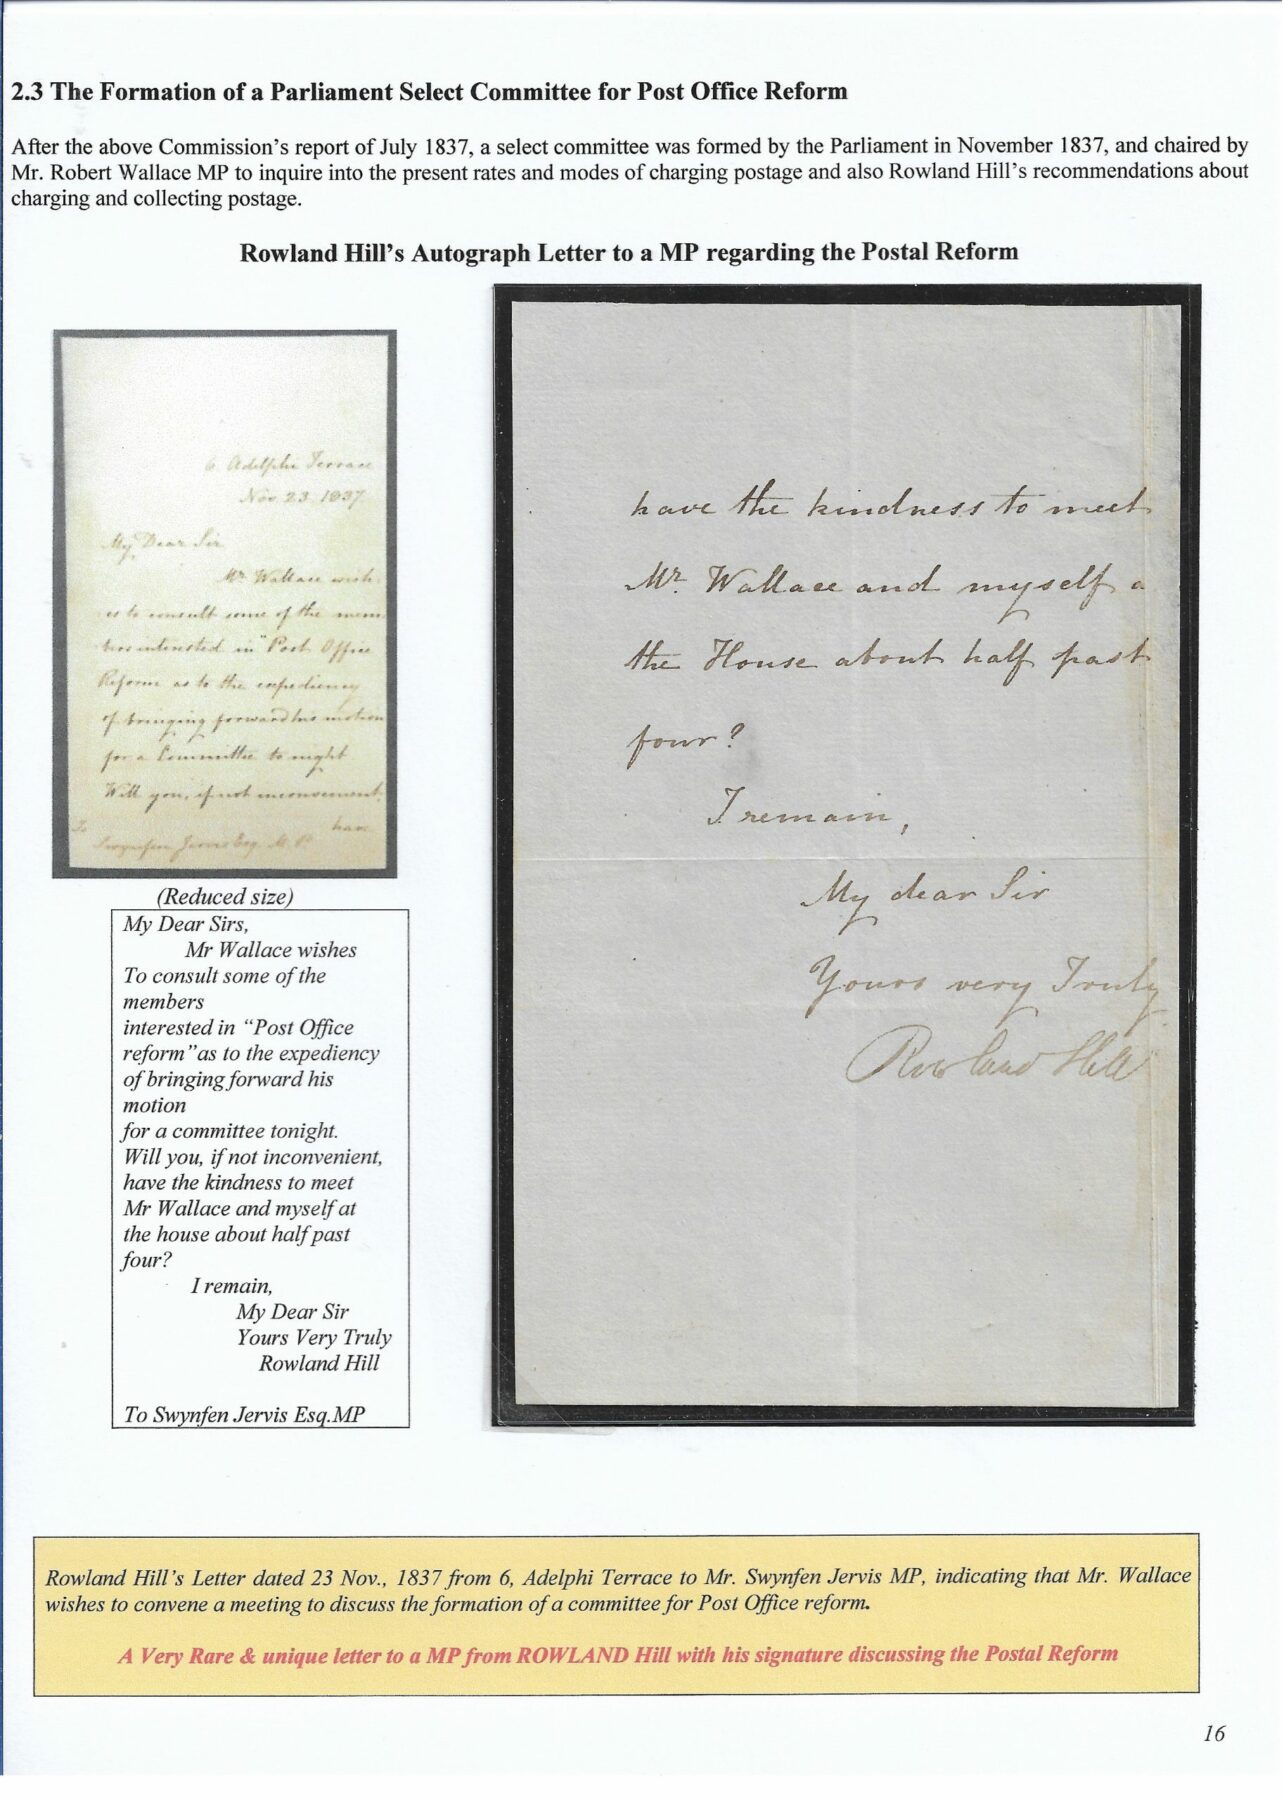 2.3 The Formation of a Parliament Select Committee for Post Office Reform
After the above Commission's report of July 1837, a select committee was formed by the Parliament in November 1837, and chaired by
Mr. Robert Wallace MP to inquire into the present rates and modes of charging postage and also Rowland Hill's recommendations about
charging and collecting postage.
Rowland Hill's Autograph Letter to a MP regarding the Postal Reform
6 Adelphi Terrace
Nov. 23. 1837
My Dear Sir
Mr. Wallace wish
es to consult some of the mem
bers interested in "Post Office
Reform as to the expediency
of bringing forward his motion
for a Committee to night
Will you, if not inconvenient,
have
To
Swynfen Jervis Esq. M.P.
(Reduced size)
My Dear Sirs,
Mr Wallace wishes
To consult some of the
members
interested in "Post Office
reform"as to the expediency
of bringing forward his
motion
for a committee tonight.
Will you, if not inconvenient,
have the kindness to meet
Mr Wallace and myself at
the house about half past
four?
I remain,
My Dear Sir
Yours Very Truly
Rowland Hill
To Swynfen Jervis Esq.MP
have the kindness to meet
Mr. Wallace and myself a
the House about half past
four?
I remain,
My dear Sir
Yours very Truly
Rowland Hill
Rowland Hill's Letter dated 23 Nov., 1837 from 6, Adelphi Terrace to Mr. Swynfen Jervis MP, indicating that Mr. Wallace
wishes to convene a meeting to discuss the formation of a committee for Post Office reform.
A Very Rare & unique letter to a MP from ROWLAND Hill with his signature discussing the Postal Reform
16